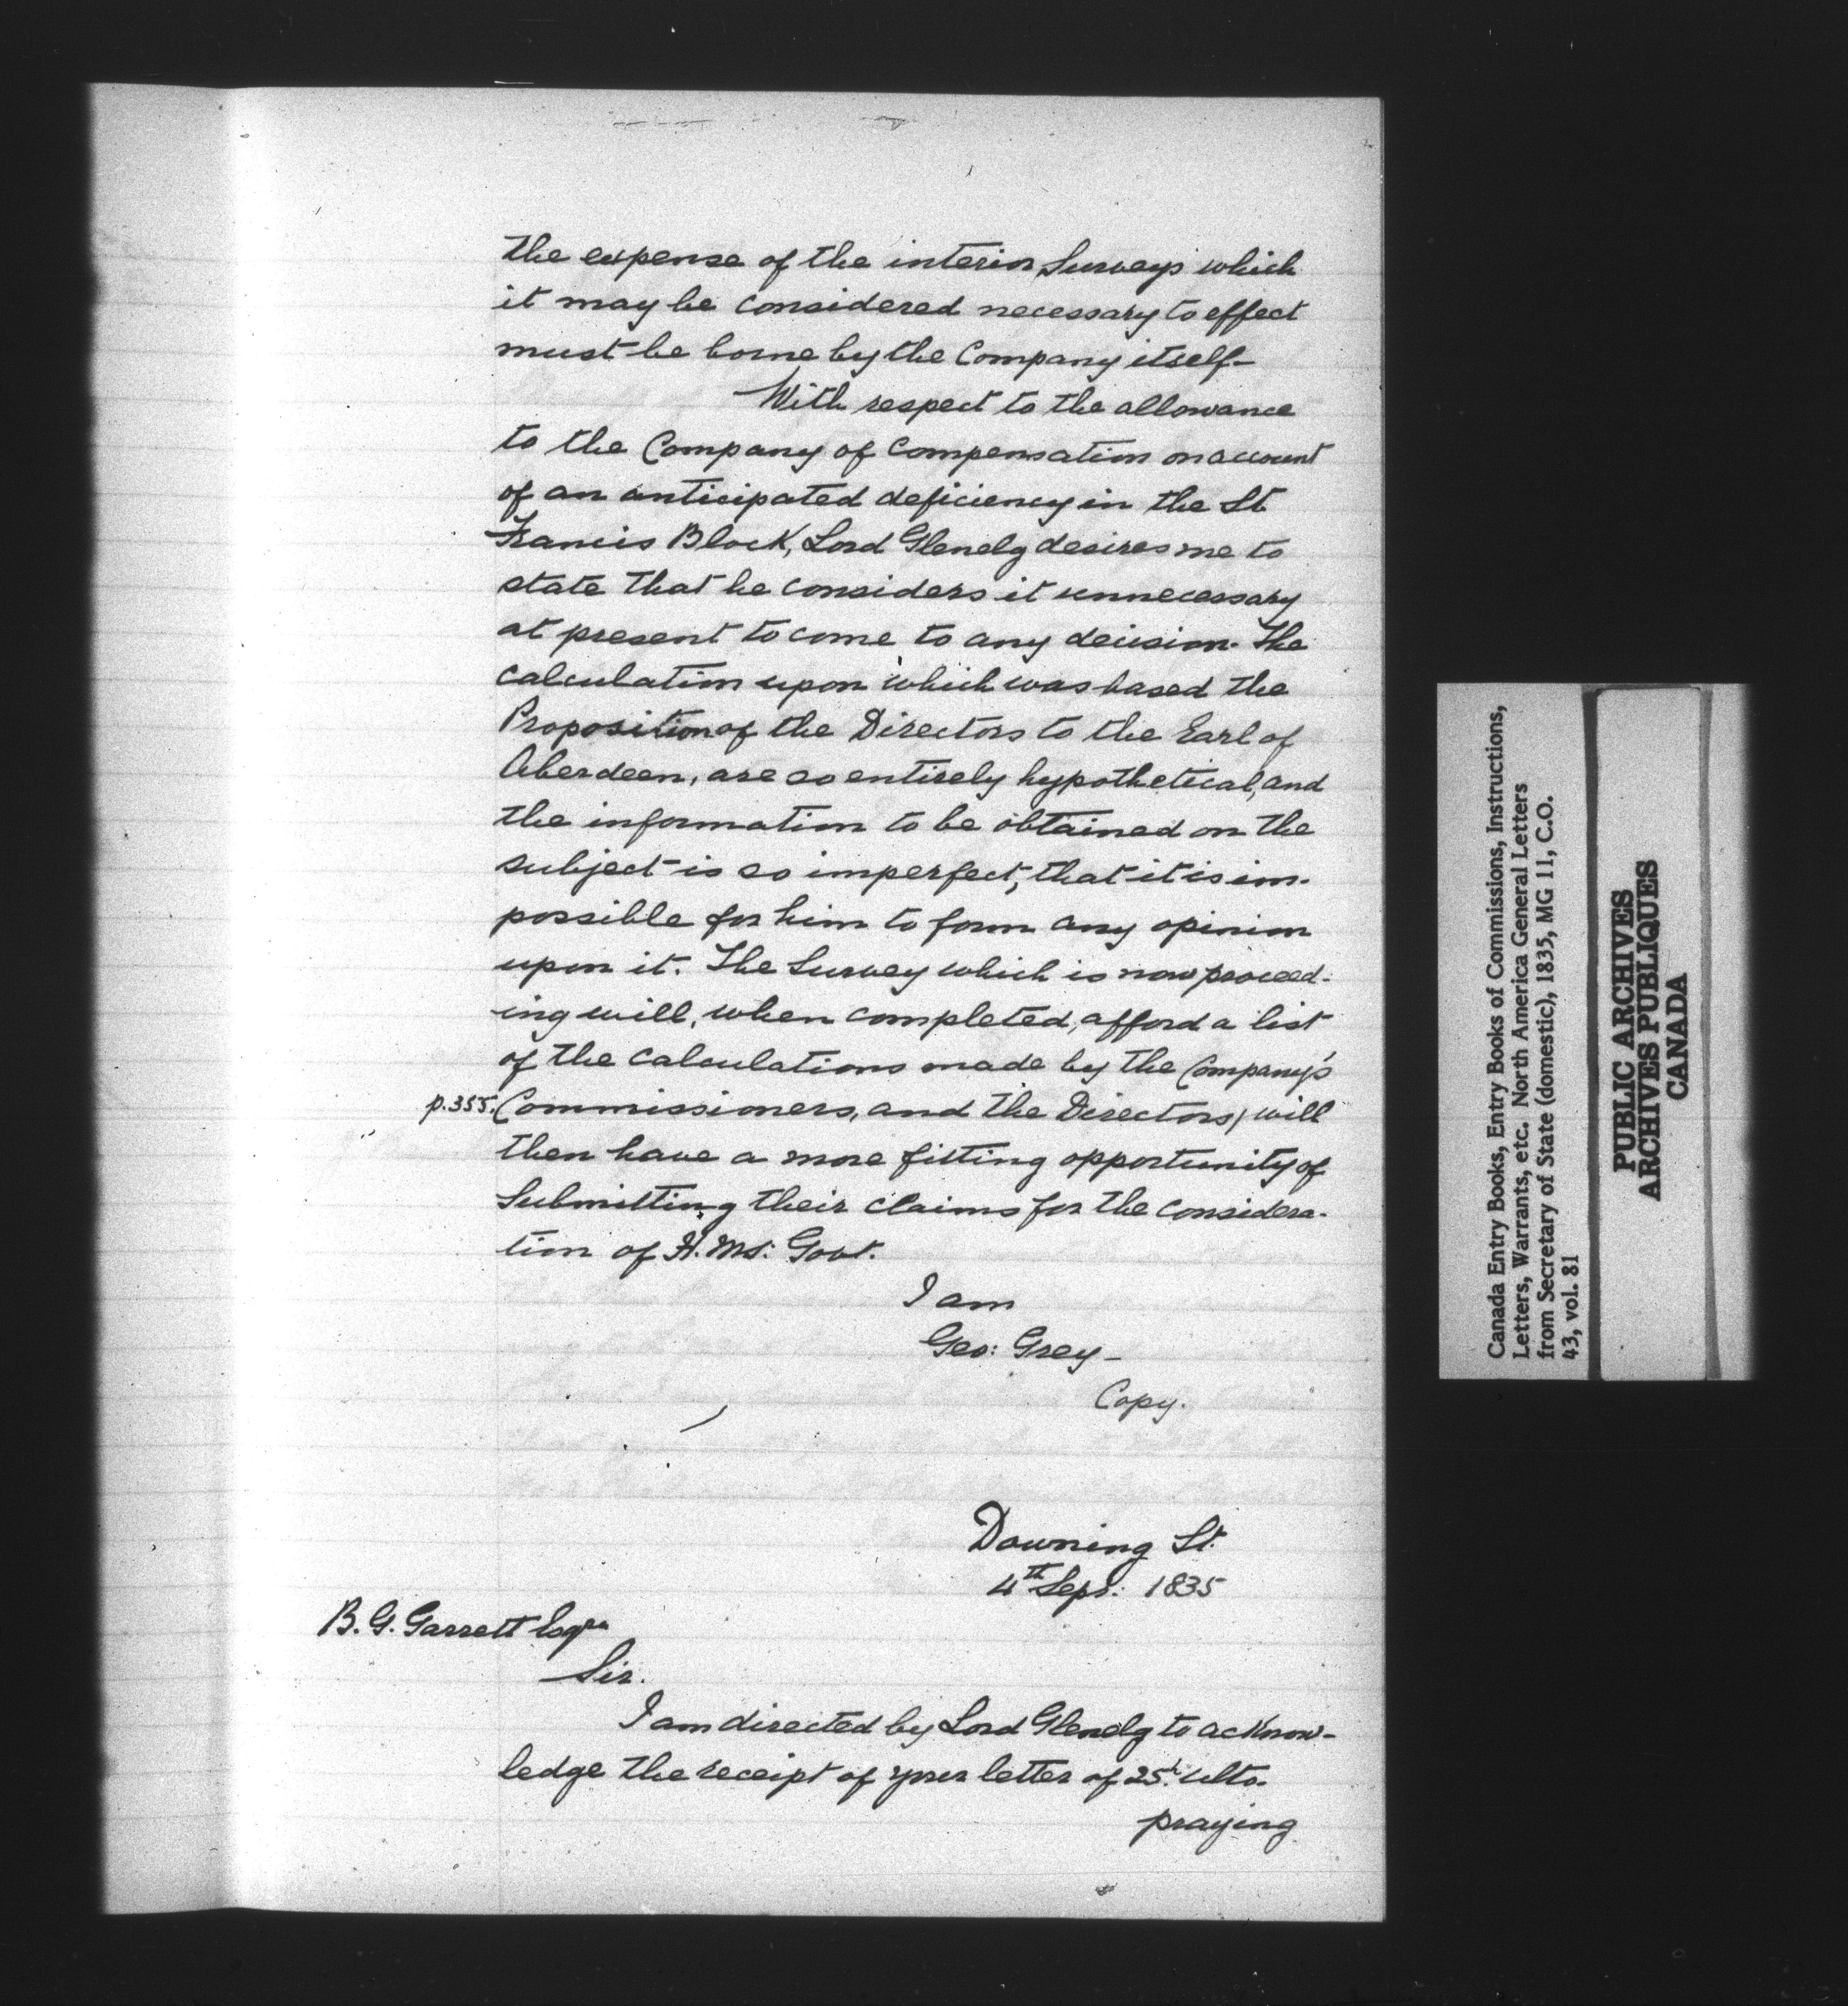 the expense of the interior Surveys which
it may be considered necessary to effect
must be borne by the Company itself-
With respect to the allowance
to the Company of Compensation on account
of an anticipated deficiency in the St
Francis Block, Lord Glenelg desires me to
state that he considers it unnecessary
at present to come to any decision. The
calculation upon which was based the
Proposition of the Directors to the Earl of
Aberdeen, are so entirely hypothetical, and
the information to be obtained on the
subject is so imperfect, that it is im-
possible for him to form any opinion
upon it. The Survey which is now proceed-
ing will, when completed, afford a list
of the calculations made by the Company's
p.355. Commissioners, and the Directors, will
then have a more fitting opportunity of
Submitting their claims for the considera-
tion of H. Ms: Govt.
I am
Geo: Grey-
Copy.
Downing St.
4th Sept: 1835
B. G. Garrett Esqre
Sir.
I am directed by Lord Glenelg to acknow-
ledge the receipt of your letter of 25th ulto.
praying
Canada Entry Books, Entry Books of Commissions, Instructions,
Letters, Warrants, etc. North America General Letters
from Secretary of State (domestic), 1835, MG 11, C.O.
43, vol. 81
PUBLIC ARCHIVES
ARCHIVES PUBLIQUES
CANADA